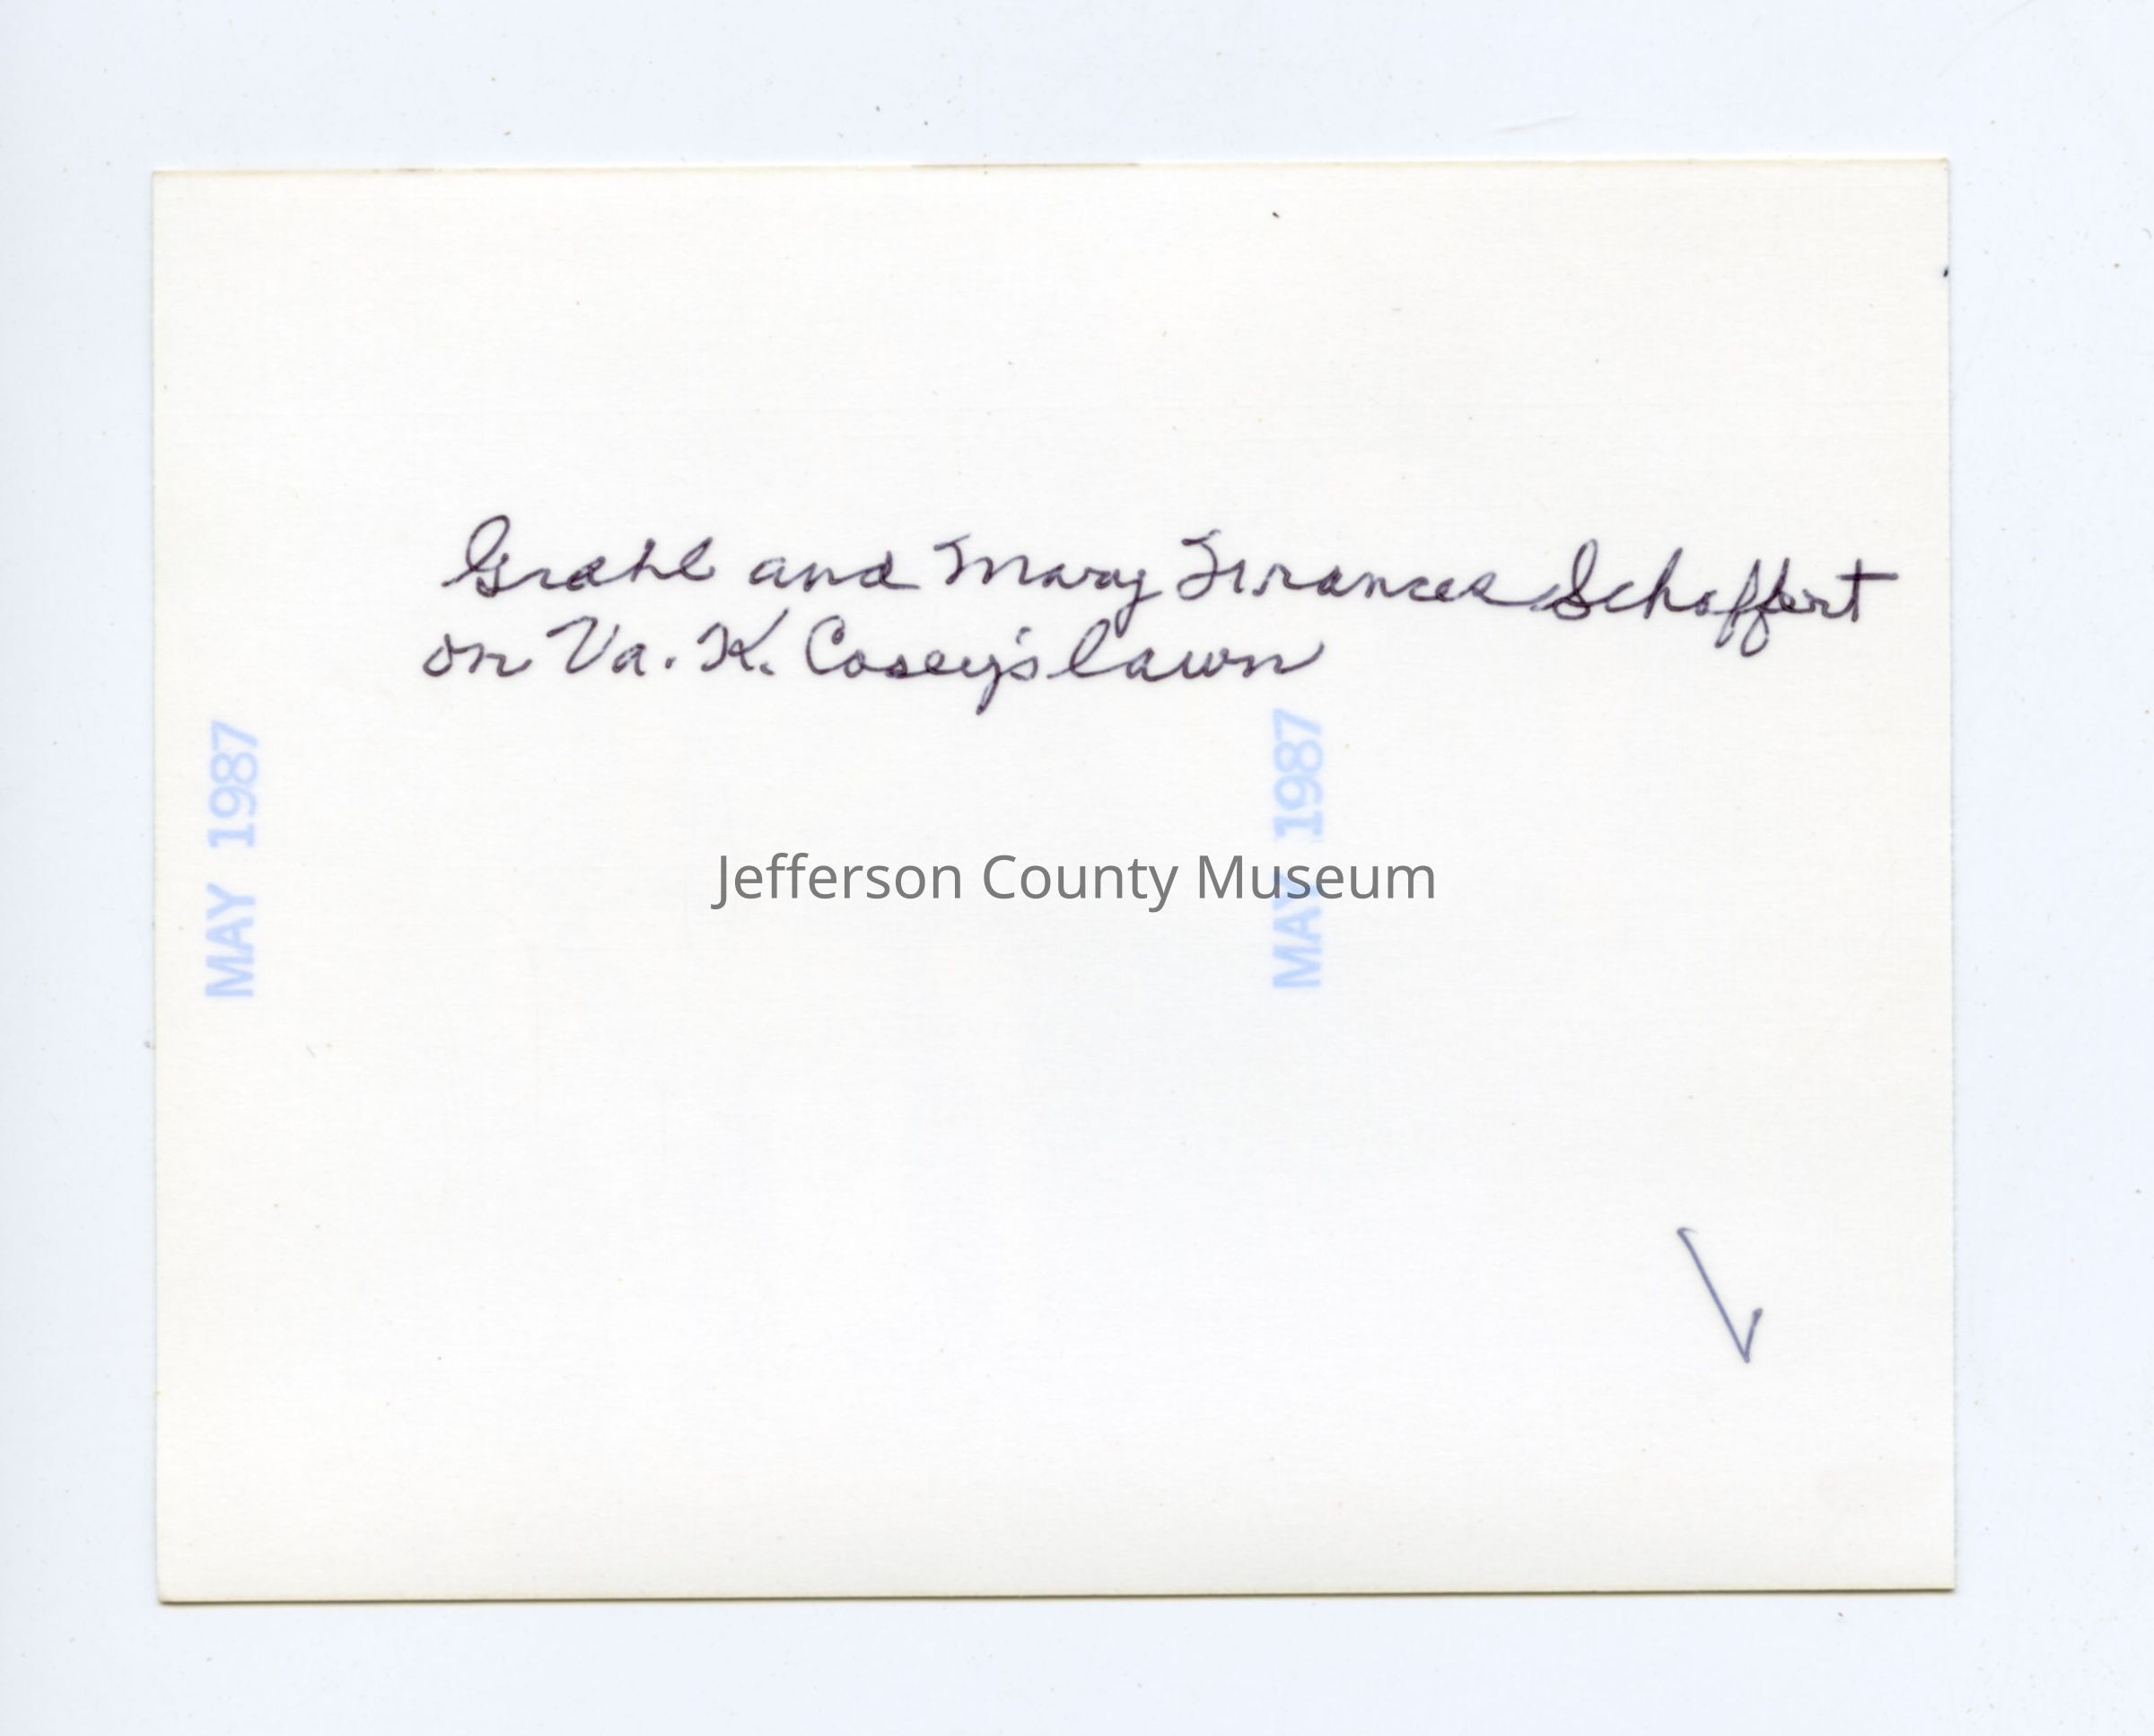 Grahl and Mary Frances Schaffert
on Va. K. Casey's lawn
MAY 1987
MAY 1987
Jefferson County Museum